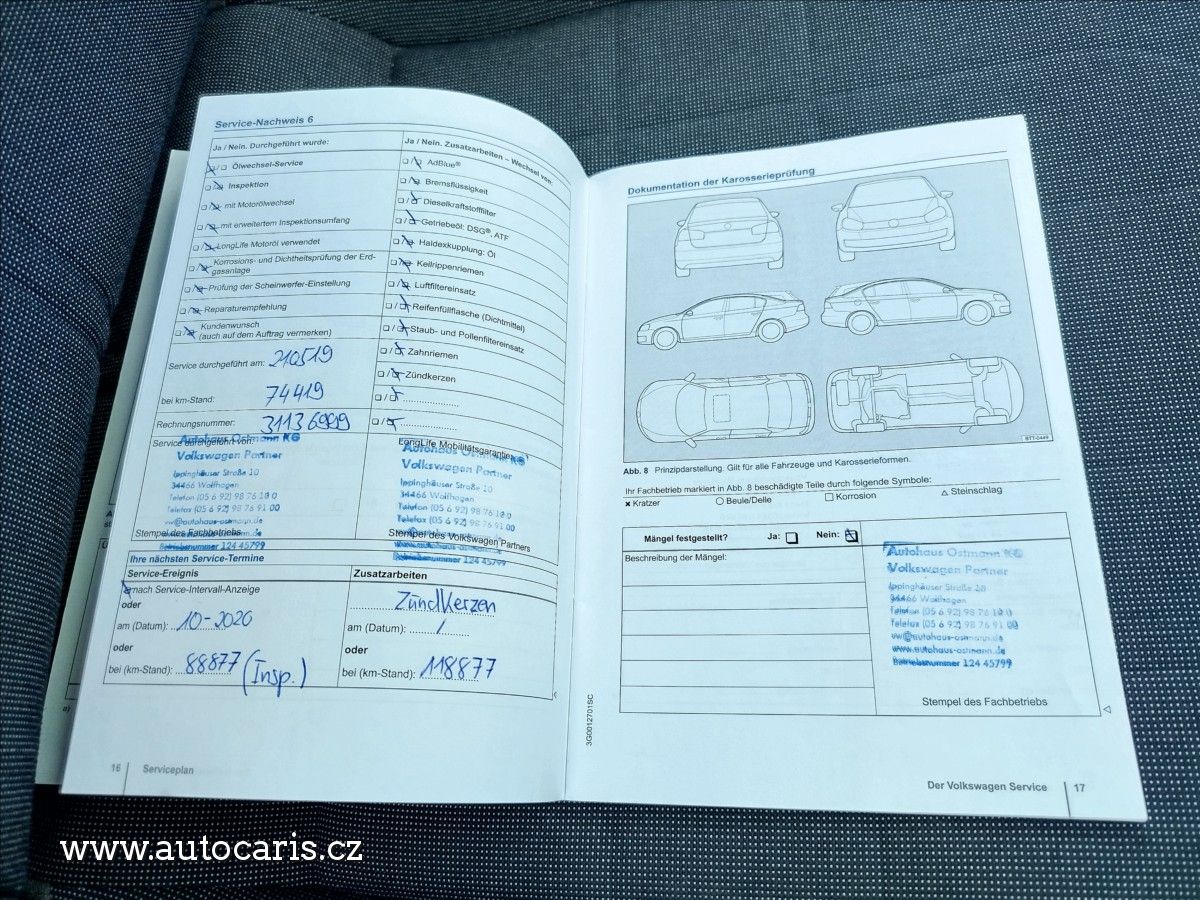 Service-Nachweis 6
Ja / Nein. Durchgeführt wurde:
Ölwechsel-Service
Inspektion
mit Motorölwechsel
mit erweitertem Inspektionsumfang
LongLife Motoröl verwendet
Korrosions- und Dichtheitsprüfung der Erd-
gasanlage
Prüfung der Scheinwerfer-Einstellung
Reparaturempfehlung
Kundenwunsch
(auch auf dem Auftrag vermerken)
Service durchgeführt am: 210519
bei km-Stand: 74419
Rechnungsnummer: 31136999
Service durchgeführt von:
Autohaus Ostmann KG
Volkswagen Partner
Ippinghäuser Straße 10
34466 Wolfhagen
Telefon (05 6 92) 98 76 10 0
Telefax (05 6 92) 98 76 91 00
vw@autohaus-ostmann.de
Stempel des Fachbetriebs
Betriebsnummer 124 45799
Ja / Nein. Zusatzarbeiten – Wechsel von:
AdBlue®
Bremsflüssigkeit
Dieselkraftstofffilter
Getriebeöl: DSG®, ATF
Haldexkupplung: Öl
Keilrippenriemen
Luftfiltereinsatz
Reifenfüllflasche (Dichtmittel)
Staub- und Pollenfiltereinsatz
Zahnriemen
Zündkerzen
LongLife Mobilitätsgarantie
Autohaus Ostmann KG
Volkswagen Partner
Ippinghäuser Straße 10
34466 Wolfhagen
Telefon (05 6 92) 98 76 10 0
Telefax (05 6 92) 98 76 91 00
vw@autohaus-ostmann.de
Stempel des Volkswagen Partners
www.autohaus-ostmann.de
Betriebsnummer 124 45799
Ihre nächsten Service-Termine
Service-Ereignis
nach Service-Intervall-Anzeige
oder
am (Datum): 10-2020
oder
bei (km-Stand): 88877 (Insp.)
Zusatzarbeiten
Zündkerzen
am (Datum): /
oder
bei (km-Stand): 118877
16 Serviceplan
3G0012701SC
Dokumentation der Karosserieprüfung
BTT-0449
Abb. 8 Prinzipdarstellung. Gilt für alle Fahrzeuge und Karosserieformen.
Ihr Fachbetrieb markiert in Abb. 8 beschädigte Teile durch folgende Symbole:
Kratzer Beule/Delle Korrosion Steinschlag
Mängel festgestellt? Ja: Nein:
Beschreibung der Mängel:
Autohaus Ostmann KG
Volkswagen Partner
Ippinghäuser Straße 10
34466 Wolfhagen
Telefon (05 6 92) 98 76 10 0
Telefax (05 6 92) 98 76 91 00
vw@autohaus-ostmann.de
www.autohaus-ostmann.de
Betriebsnummer 124 45799
Stempel des Fachbetriebs
Der Volkswagen Service 17
www.autocaris.cz